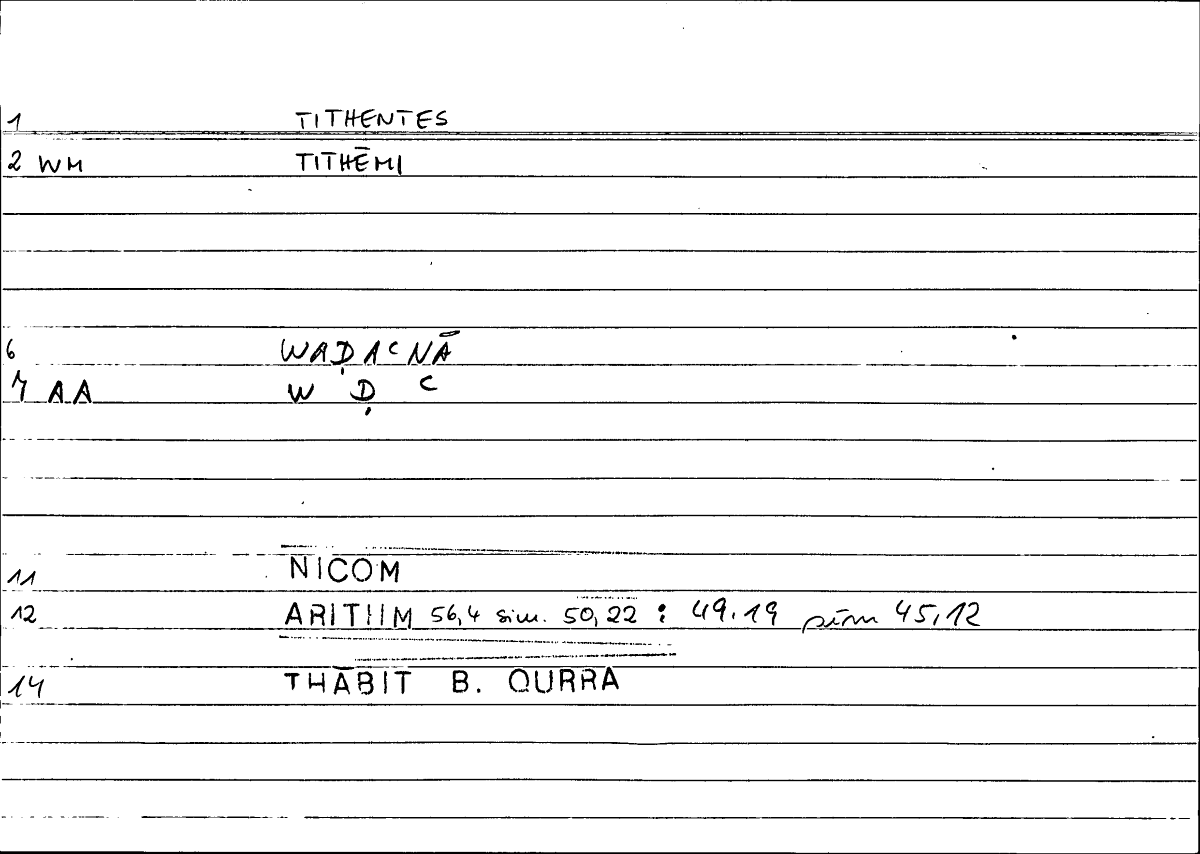 1 TITHENTES
2 WM TITHĒMI
6 WAḌAʿNĀ
7 AA W Ḍ ʿ
11 NICOM
12 ARITIIM 56,4 sim. 50,22 : 49,19 sim 45,12
14 THĀBIT B. QURRA